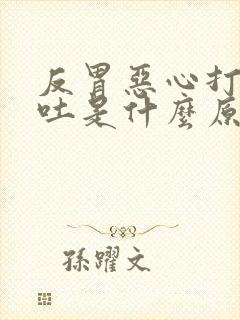 反胃惡心打
吐是什麼原
孫躍文